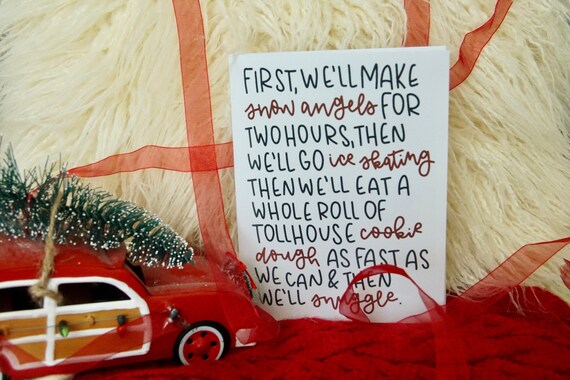 FIRST, WE'LL MAKE
snow angels FOR
TWO HOURS, THEN
WE'LL GO ice skating
THEN WE'LL EAT A
WHOLE ROLL OF
TOLLHOUSE cookie
dough AS FAST AS
WE CAN & THEN
WE'LL snuggle.